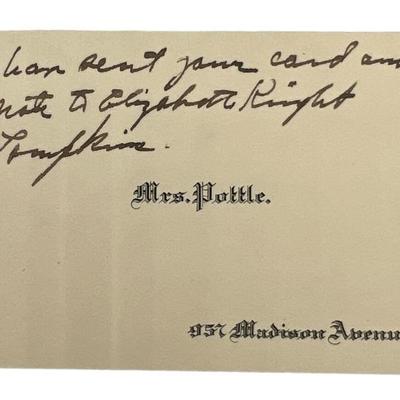 have sent your card and
note to Elizabeth Knight
Tompkins.
Mrs. Pottle.
957 Madison Avenue